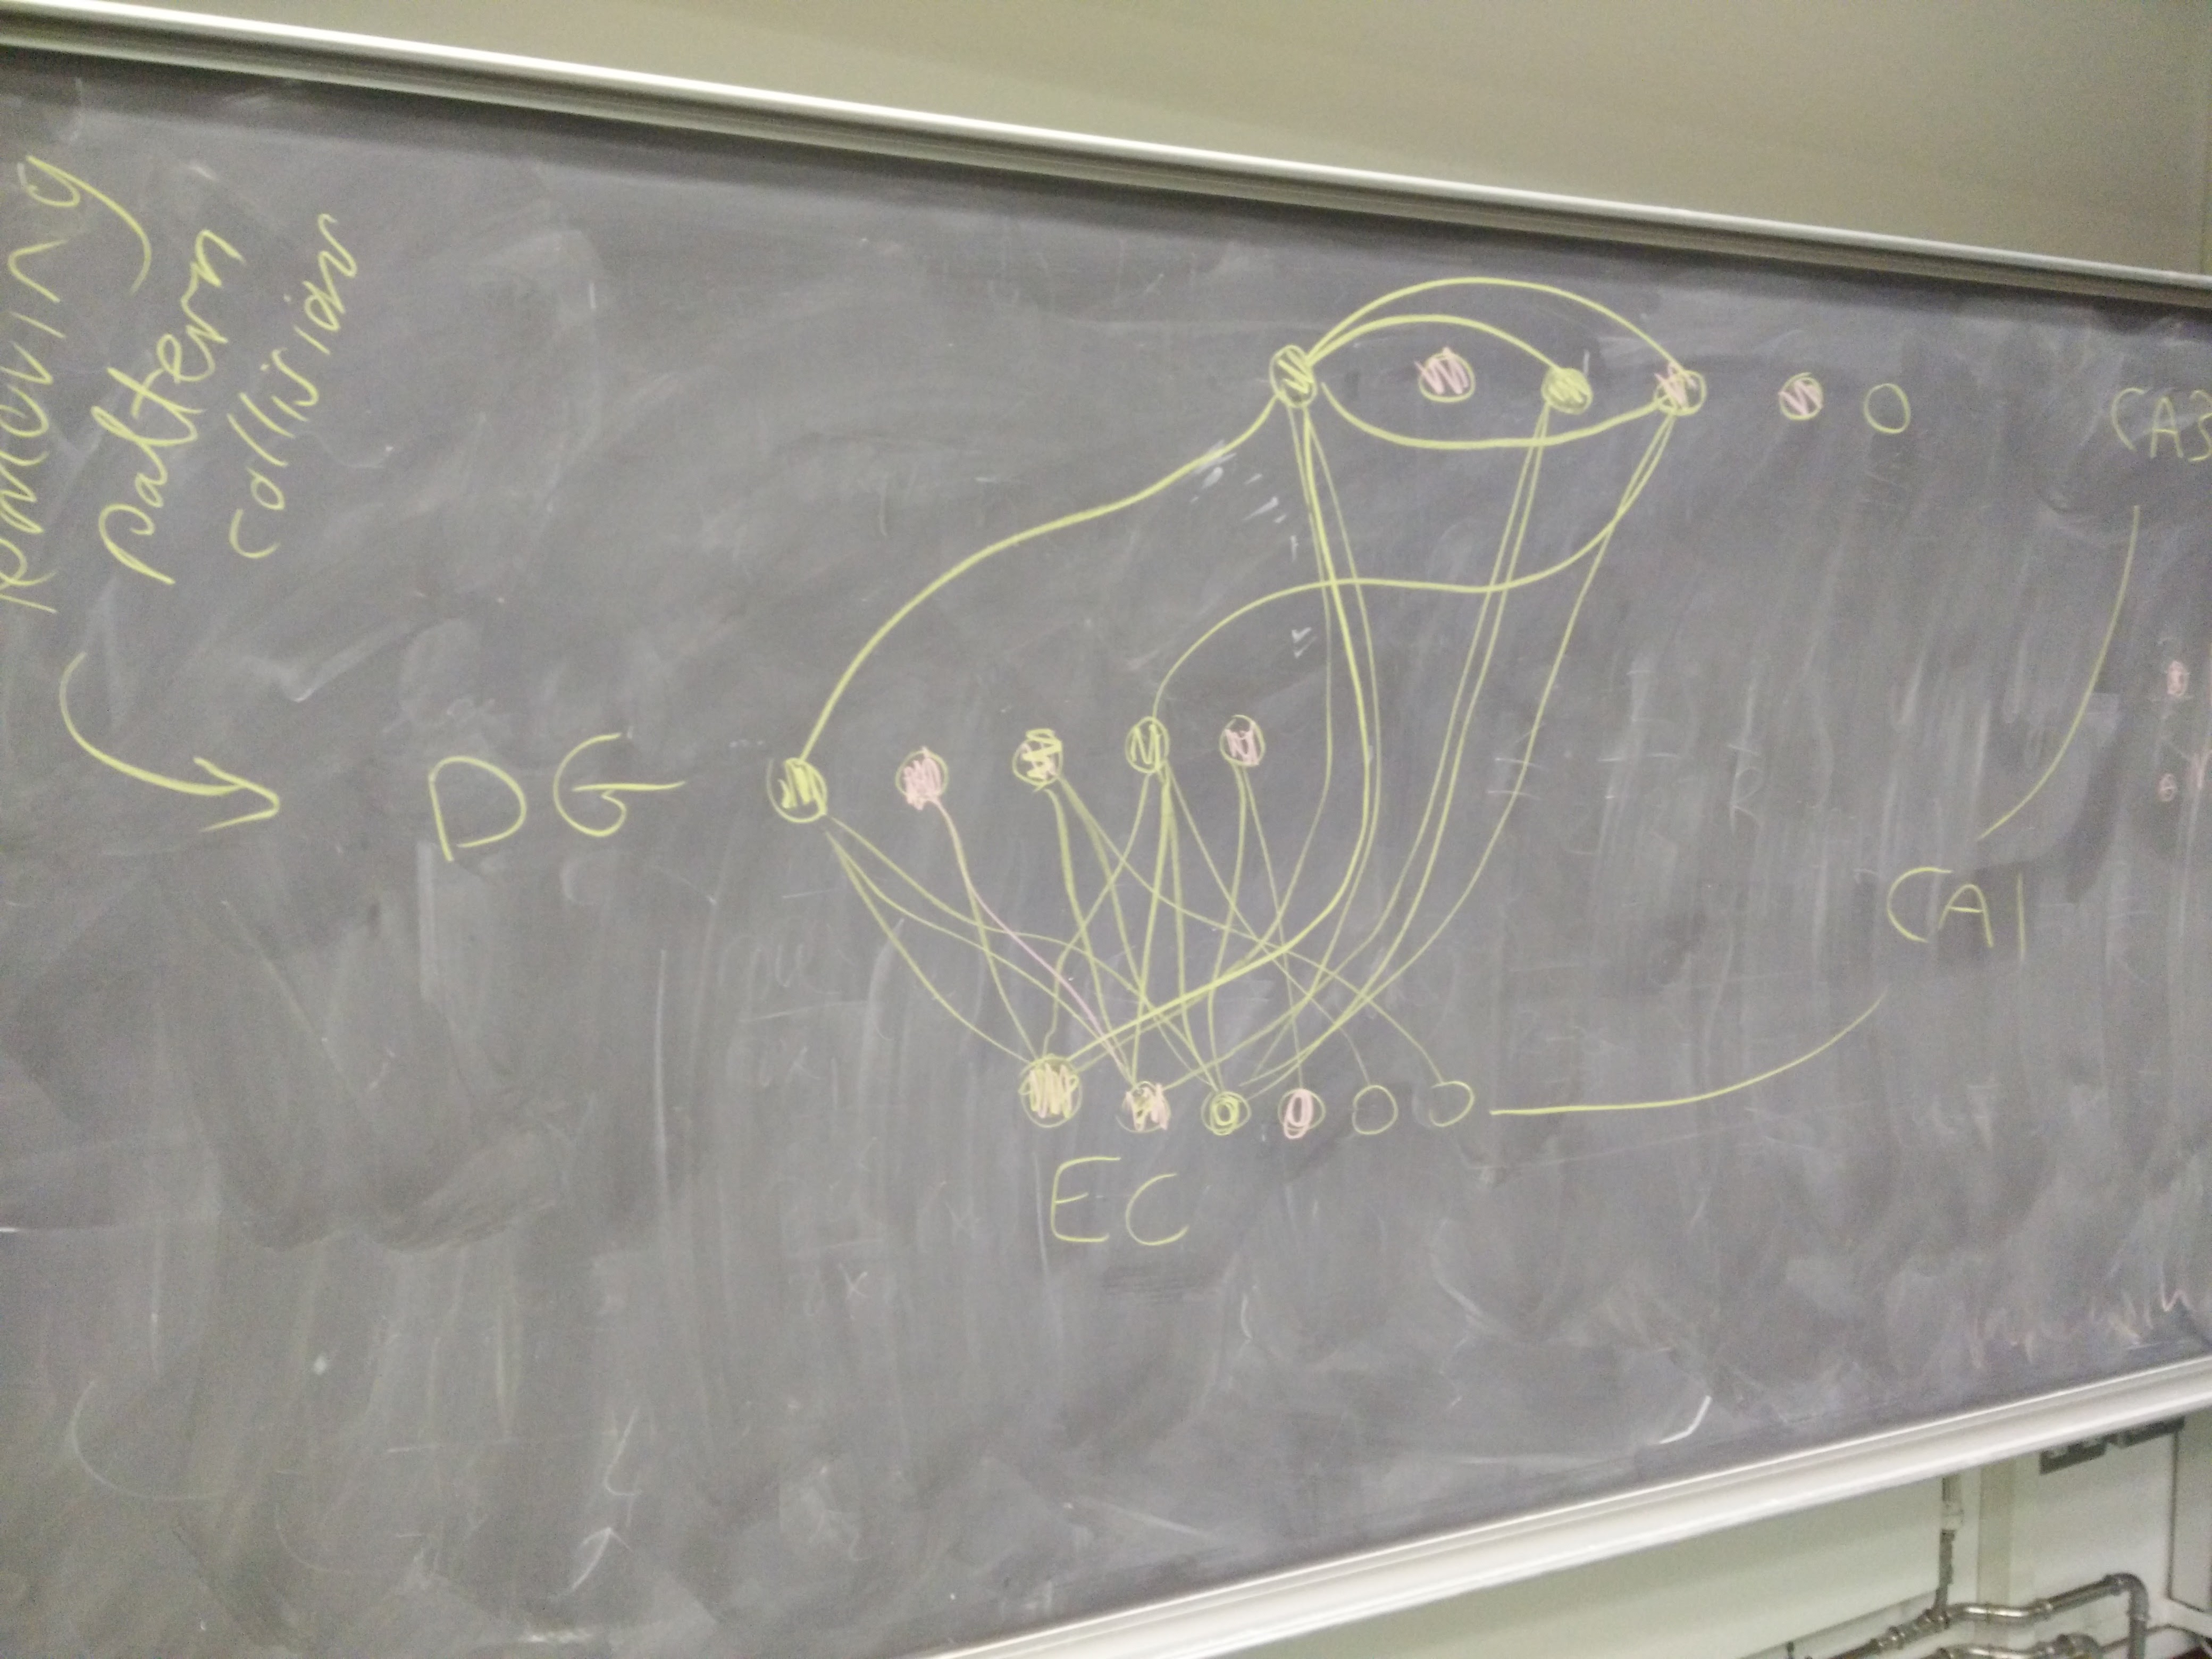 removing
pattern
collision
CA3
DG
CA1
EC